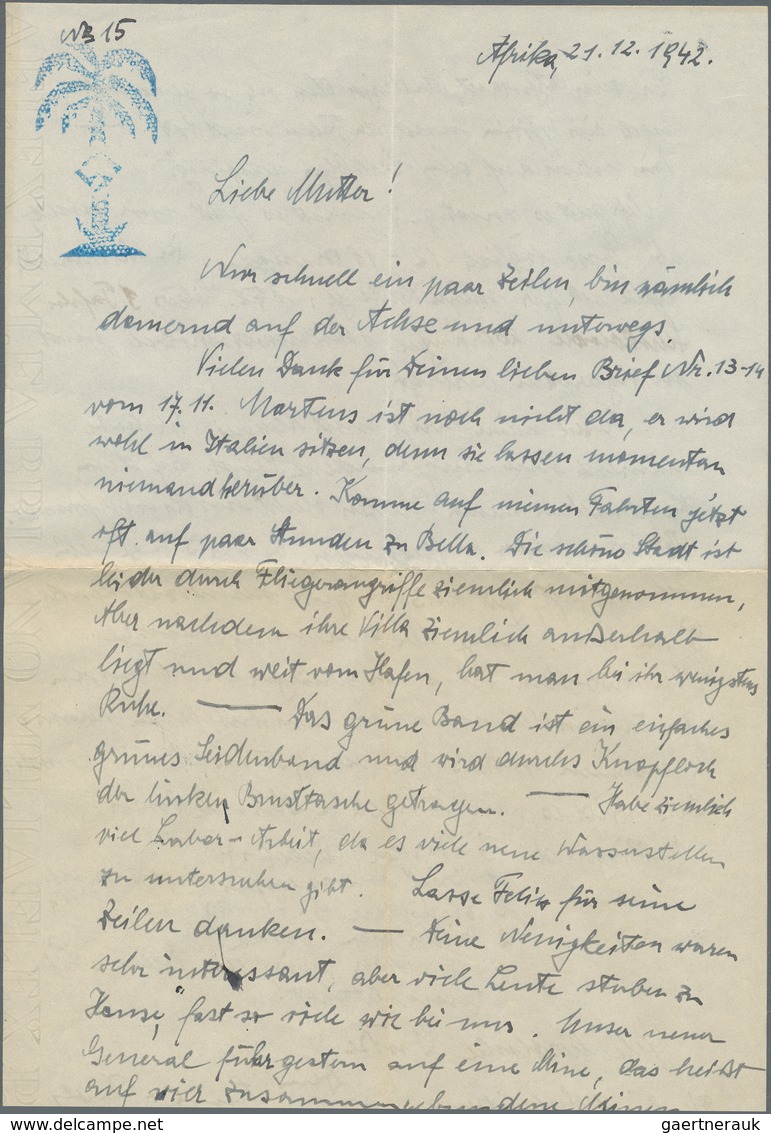 No 15
Afrika, 21.12.1942.
Liebe Mutter!
Nur schnell ein paar Zeilen, bin nämlich
dauernd auf der Achse und unterwegs.
Vielen Dank für Deinen lieben Brief Nr. 13-14
vom 17.11. Martens ist noch nicht da, er wird
wohl in Italien sitzen, denn sie lassen momentan
niemand herüber. Komme auf meinen Fahrten jetzt
oft auf paar Stunden zu Bella. Die schöne Stadt ist
leider durch Fliegerangriffe ziemlich mitgenommen,
Aber nachdem ihre Villa ziemlich außerhalb
liegt und weit vom Hafen, hat man bei ihr wenigstens
Ruhe. — Das grüne Band ist ein einfaches
grünes Seidenband und wird durchs Knopfloch
der linken Brusttasche getragen. — Habe ziemlich
viel Labor-Arbeit, da es viele neue Wasserstellen
zu untersuchen gibt. Lasse Felix für seine
Zeilen danken. — Deine Neuigkeiten waren
sehr interessant, aber viele Leute sterben zu
Hause, fast so viele wie bei uns. Unser neuer
General fuhr gestern auf eine Mine, das heißt
auf vier zusammengebundene Minen
gaertnerauk